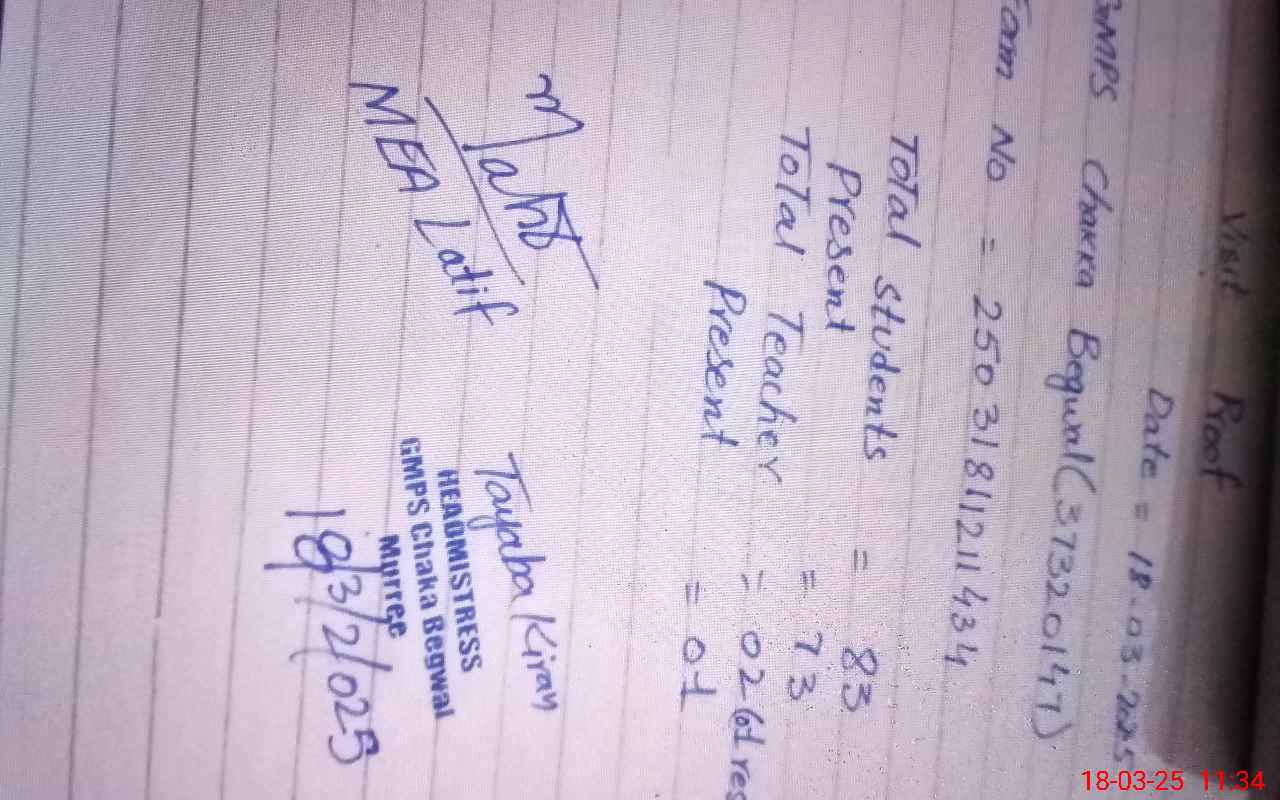 Visit Proof
Date = 18-03-2025
GMPS Chakka Begwal (37320147)
Foam No = 250318112114334
Total Students = 83
Present = 73
Total Teacher = 02
Present = 01
MEA Latif
Tayaba Kiran
HEADMISTRESS
GMPS Chaka Begwal
Murree
18/3/2/025
18-03-25 11:34